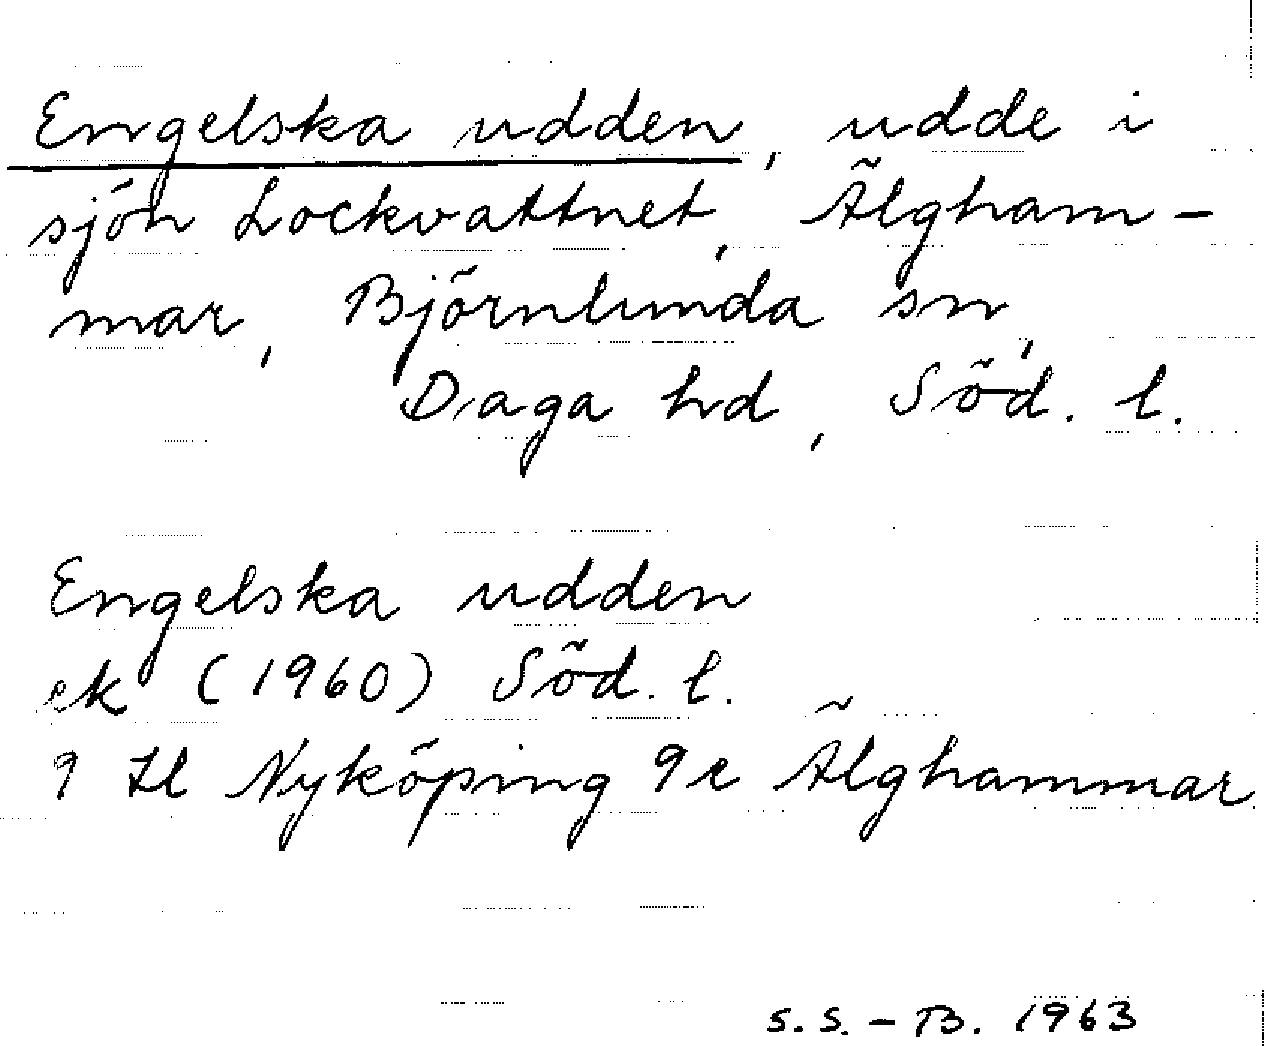 Engelska udden, udde i
sjön Lockvattnet, Älgham-
mar, Björnlunda sn,
Daga hd, Söd. l.
Engelska udden
ek (1960) Söd. l.
9 Nyköping 9e Älghammar
S.S.-B. 1963